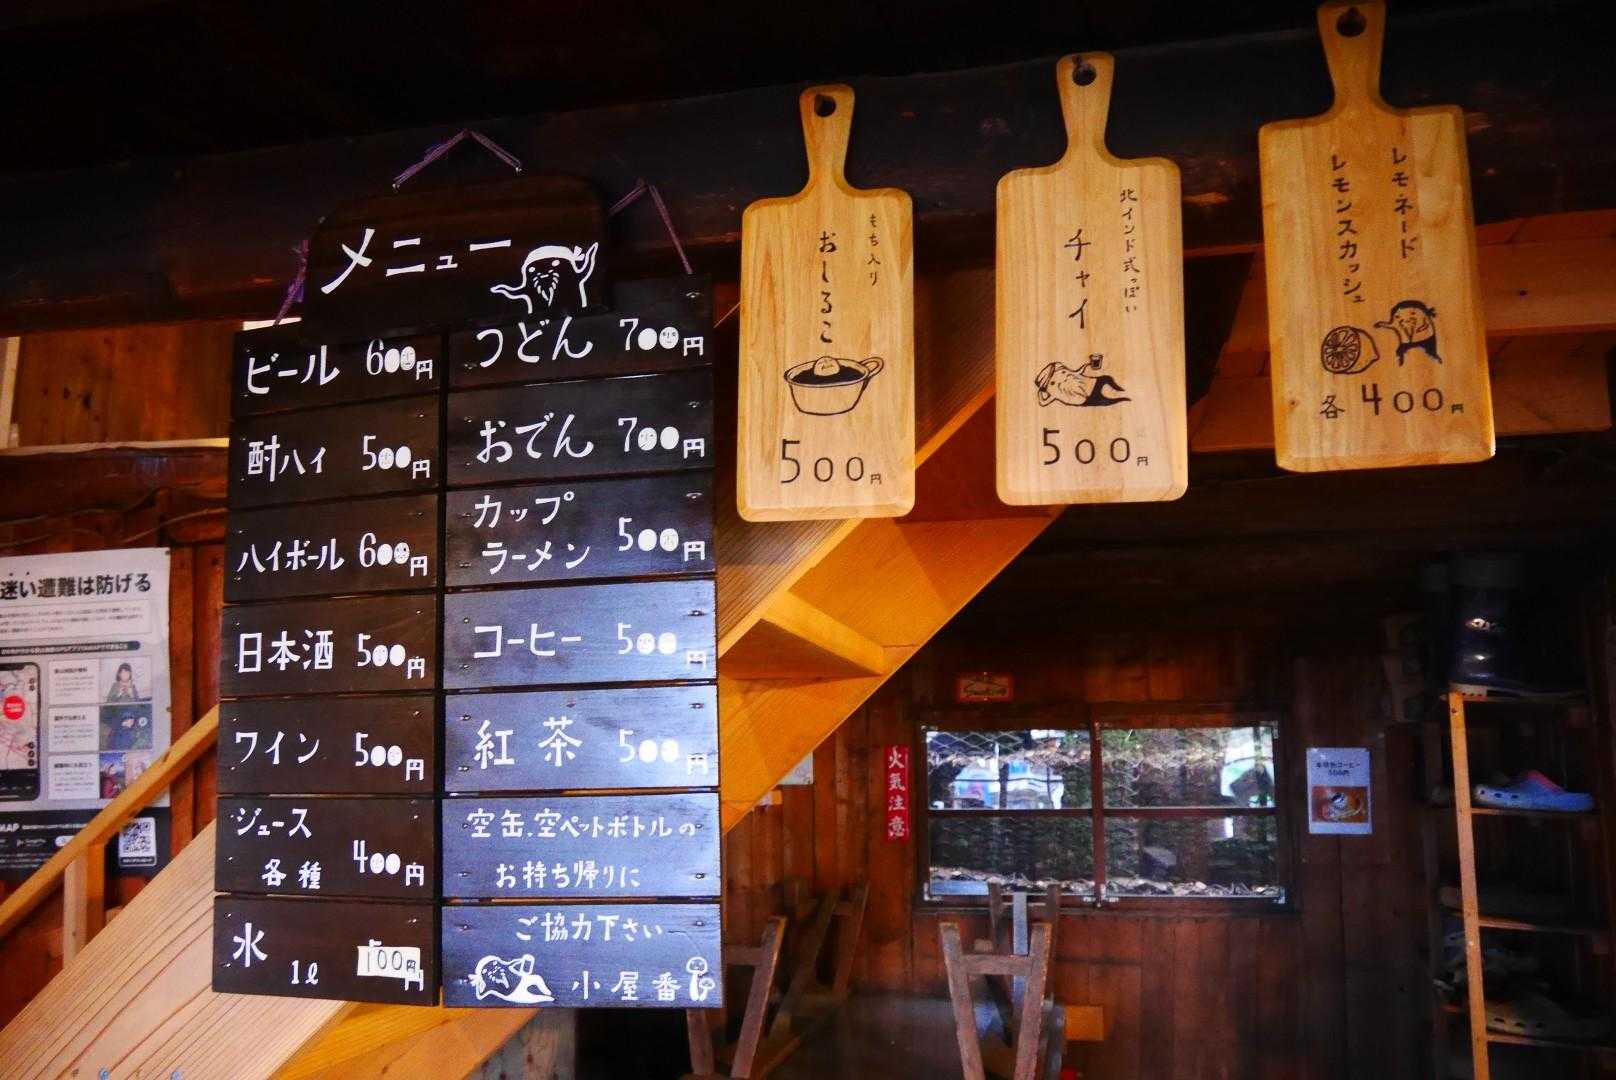 メニュー
ビール 600円
酎ハイ 500円
ハイボール 600円
日本酒 500円
ワイン 500円
ジュース
各種 400円
水 1ℓ 100円
うどん 700円
おでん 700円
カップ
ラーメン 500円
コーヒー 500円
紅茶 500円
空缶.空ペットボトルの
お持ち帰りに
ご協力下さい
小屋番
もち入り
おしるこ
500円
北インド式っぽい
チャイ
500円
レモネード
レモンスカッシュ
各400円
迷い遭難は防げる
MAP
火気注意
本格的コーヒー
500円